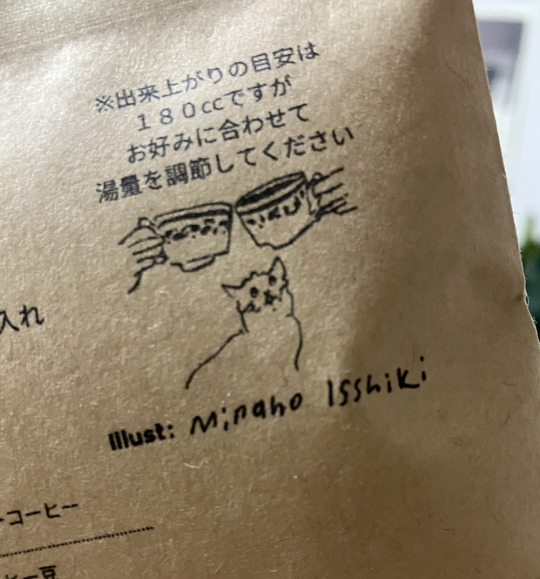 ※出来上がりの目安は
１８０ccですが
お好みに合わせて
湯量を調節してください
入れ
Illust: Minaho Isshiki
コーヒー
ー豆